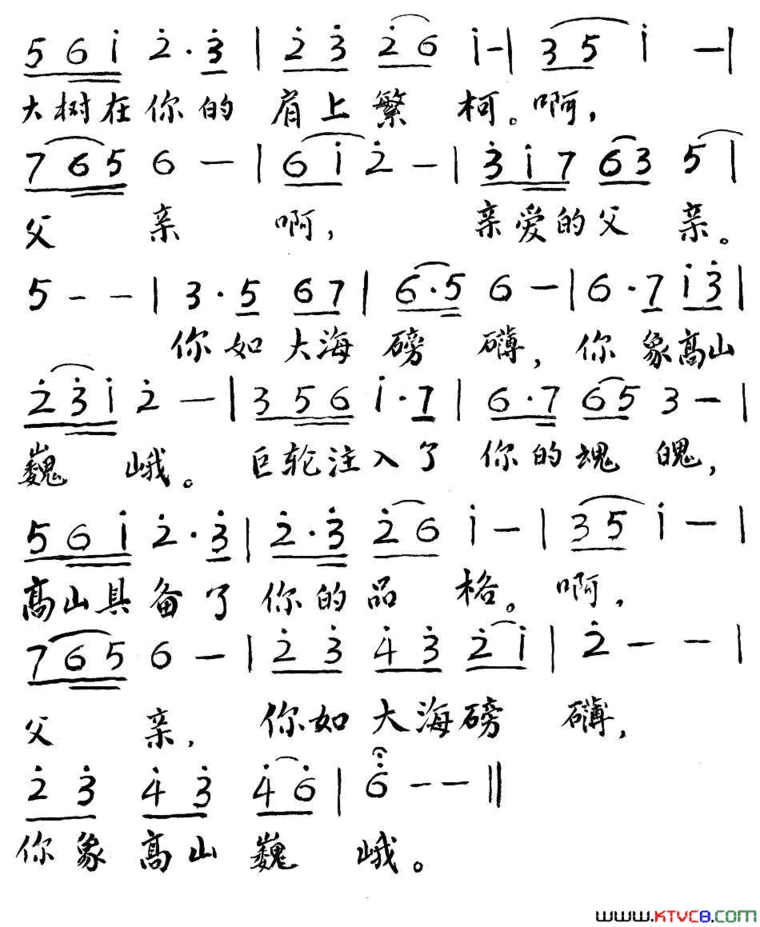 5 6 i̇ 2̇ · 3̇ | 2̇ 3̇ 2̇ 6 i̇ - | 3 5 i̇ — |
大树在你的 肩上繁 柯。啊,
7 6 5 6 — | 6 i̇ 2̇ — | 3̇ i̇ 7 6 3 5 |
父 亲 啊, 亲爱的父 亲。
5 - - | 3 · 5 6 7 | 6 · 5 6 — | 6 · 7 i̇ 3̇ |
你如大海磅 礴, 你象高山
2̇ 3̇ i̇ 2̇ — | 3 5 6 i̇ · 7 | 6 · 7 6 5 3 — |
巍 峨。 巨轮注入了 你的魂 魄,
5 6 i̇ 2̇ · 3̇ | 2̇ · 3̇ 2̇ 6 i̇ — | 3 5 i̇ — |
高山具备了 你的品 格。啊,
7 6 5 6 — | 2̇ 3̇ 4̇ 3̇ 2̇ i̇ | 2̇ — — |
父 亲, 你如大海磅 礴,
2̇ 3̇ 4̇ 3̇ 4̇ 6̇ | 6̇ — — ‖
你象高山巍 峨。
www.KTVC8.COM